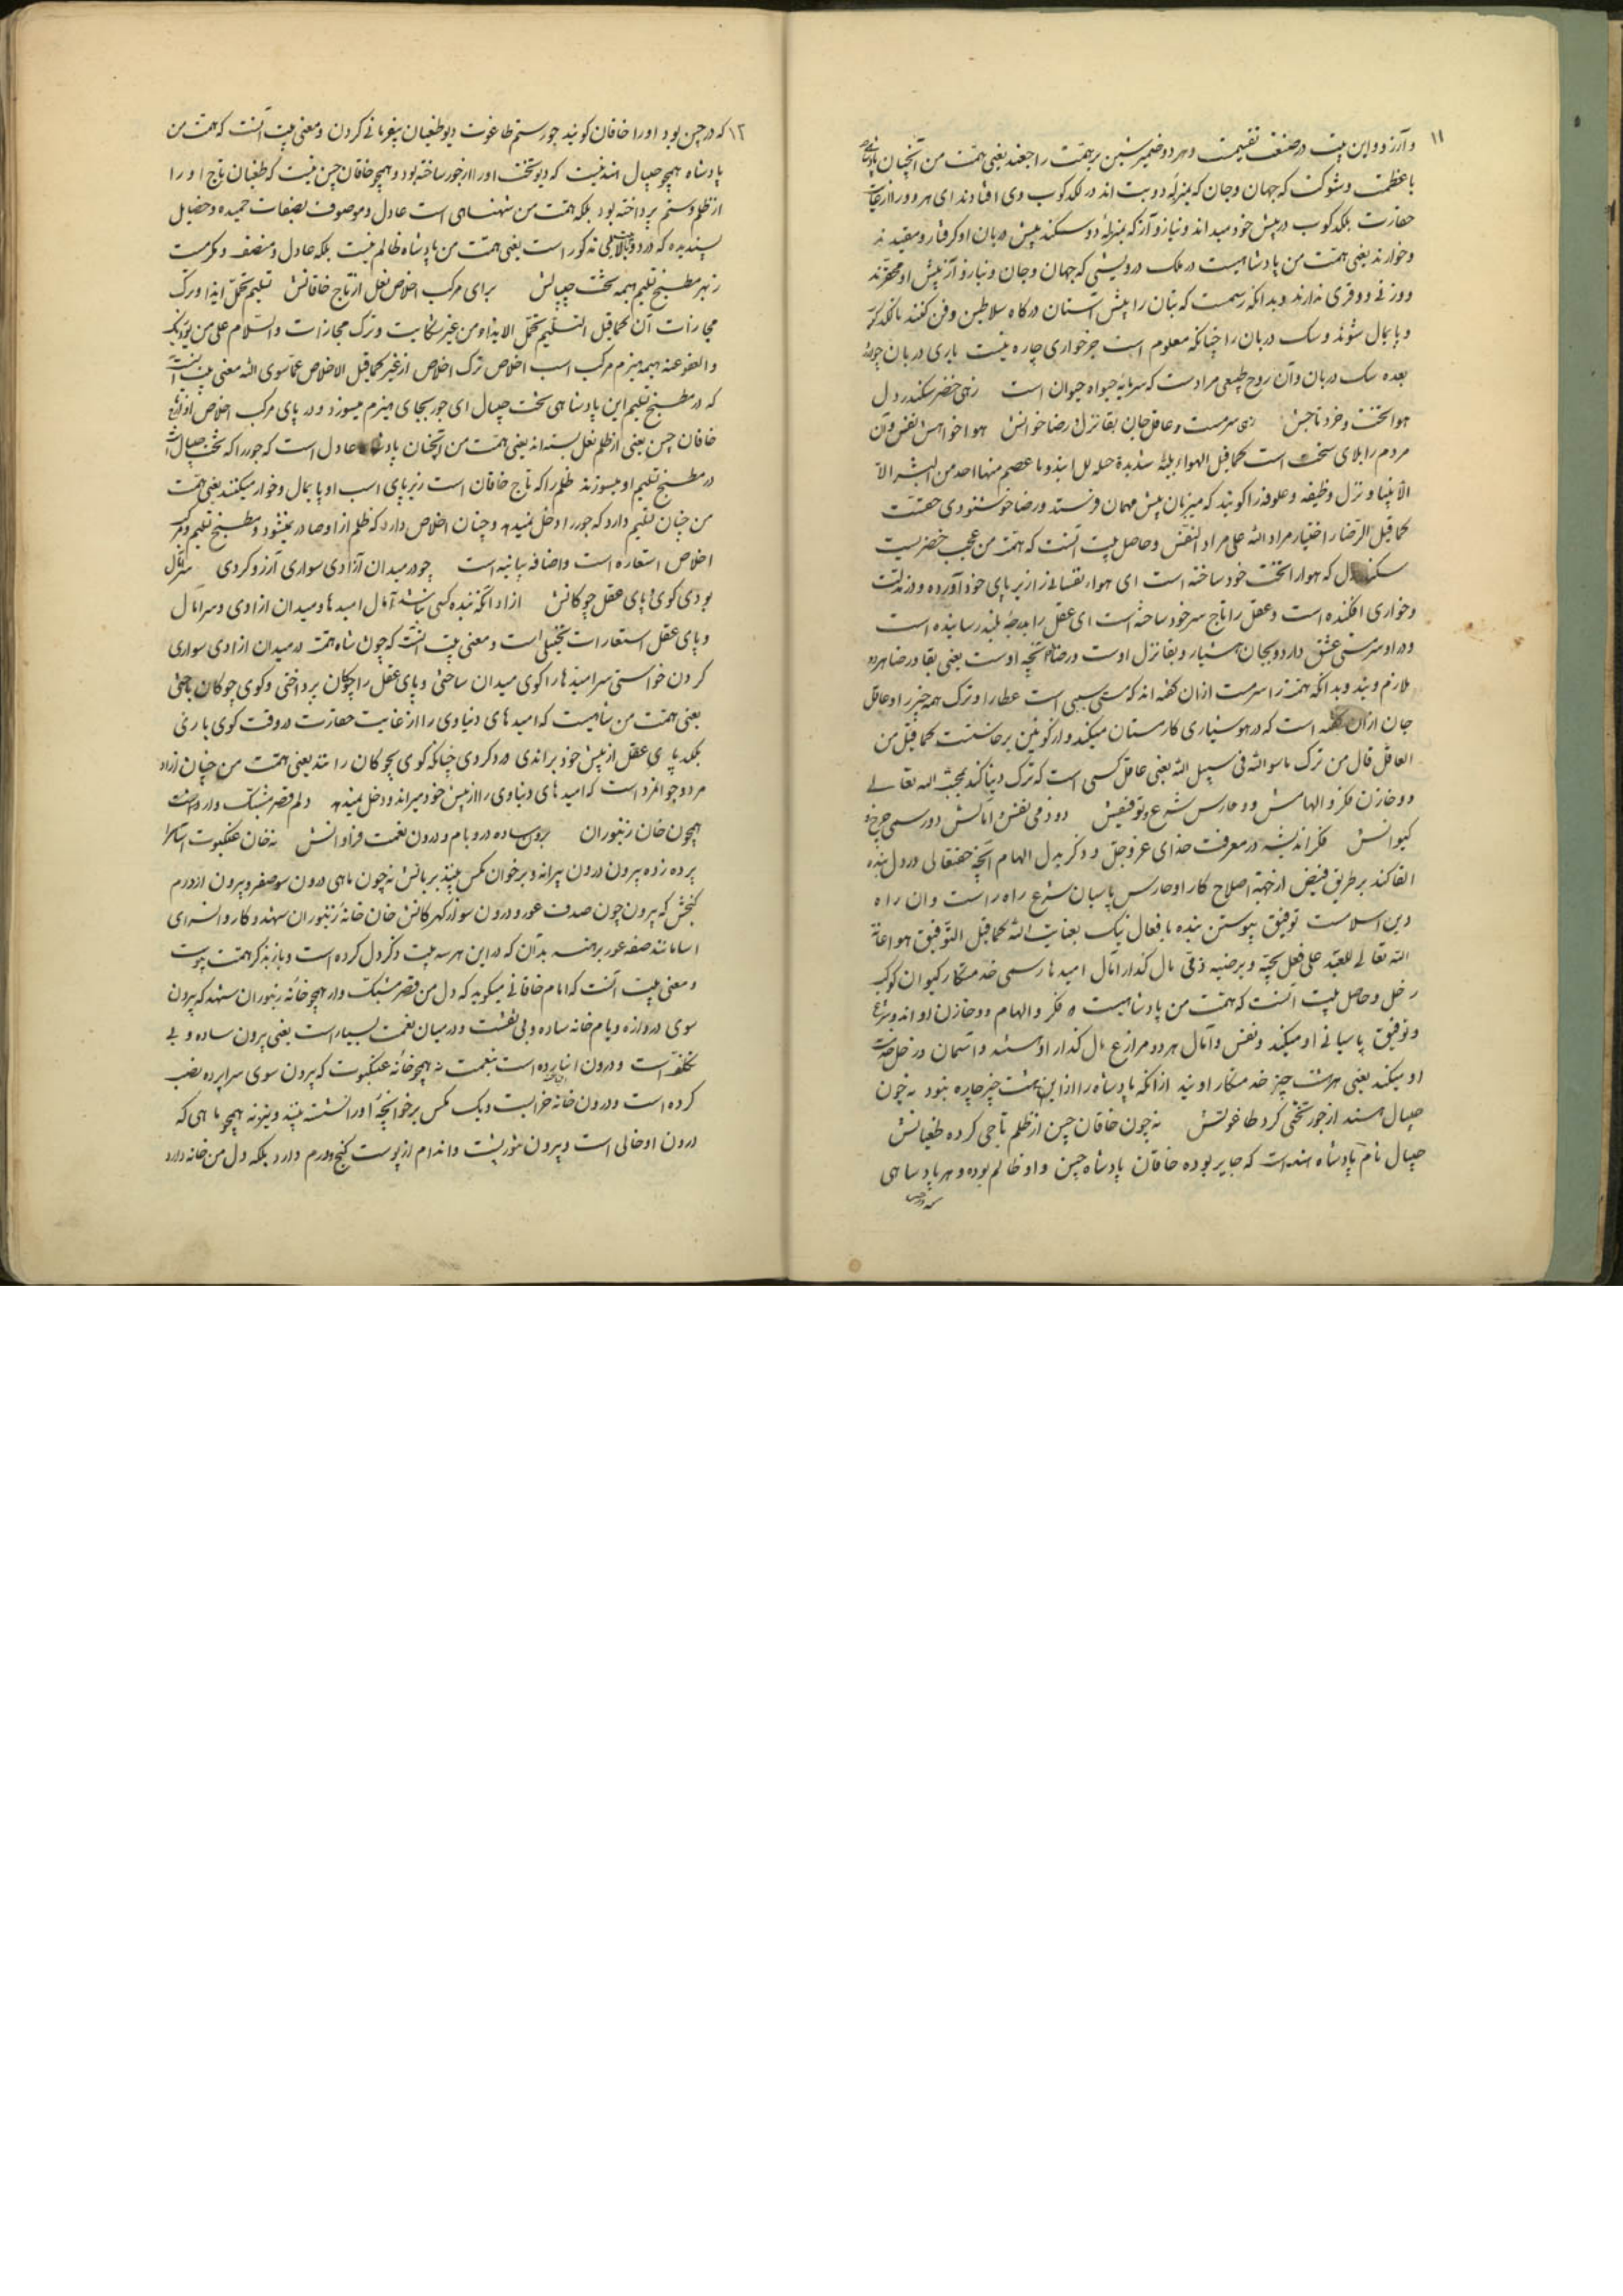 ۱۱
و آرزو و این بیت در صنعت تقسیمست و هر دو ضمیر شین بر همّت راجعند یعنی همّت من آنچنان پادشاه
با عظمت و شوکت که جهان و جان که بمنزلهٔ دو بت اند در لکدکوب وی افتادند ای هر دو را از غایت
حقارت بلکدکوب در پیش خود میداند و نیاز و آز که بمنزلهٔ دو سکند پیش دربان او کرفتار و مقیدند
و خوارند یعنی همّت من پادشاهیست در ملک درویشی که جهان و جان و نیاز و آز پیش او محقرند
و وزنی و وقری ندارند و بدانکه رسمست که بتان را پیش آستان درکاه سلاطین دفن کنند تا لکدکوب
و پایمال شوند و سک دربان را چنانکه معلوم است جز خواری چاره نیست
بعده سک دربان و آن روح طبیعی مرادست که سرمایهٔ حیوان است زهی خضر سکندر دل
هوا تختت و خرد تاجش زهی سرمست و عاقل جان بقا نزل رضا خوانش هوا خواهش نفس و آن
مردم را بلای سخت است کما قیل الهواء بلیّة شدیدة
الانبیا و نزل وظیفه و علوفه را کویند که میزبان پیش مهمان فرستد و رضا خوشنودی حقست
کما قیل الرّضا اختیار مراد اللّه علی مراد النفس و حاصل بیت آنست که همّت من عجب خضریست
سکندر دل که هوا را تخت خود ساخته است ای هواء نفسانی را زیر پای خود آورده و در مذلّت
و خواری افکنده است و عقل را تاج سر خود ساخته است ای عقل را بدرجهٔ بلند رسانیده است
و در او سرمستی عشق دارد و بجان هشیار و بقا نزل اوست و رضا خوانچهٔ اوست یعنی بقا و رضا هر دو
ملازم ویند و بدانکه همّت را سرمست از ان کفته اند که مستی سببی است عطا را و ترک همه چیز را و عاقل
جان از ان کفته است که در هوشیاری کار مستان میکند و از کونین برخاستست کما قیل من
العاقل قال من ترک ما سوا اللّه فی سبیل اللّه یعنی عاقل کسی است که ترک دنیا کند بمحبّة اللّه تعالی
دو خازن فکر و الهامش دو حارس شرع و توفیقش دو ذمی نفس و آمالش دو رسمی چرخ و
کیوانش فکر اندیشه در معرفت خدای عزّ و جلّ و ذکر بدل الهام آنچه حقتعالی در دل بنده
القا کند بر طریق فیض از جهة اصلاح کار او حارس پاسبان شرع راه راست و ان راه
دین اسلامست توفیق پیوستن بنده بافعال نیک بعنایت اللّه کما قیل التّوفیق هو اعانة
اللّه تعالی للعبد علی فعل یحبّه و یرضیه ذمّی مال کذار آمال امیدها رسمی خدمتکار کیوان کوکب
زحل و حاصل بیت آنست که همّت من پادشاهیست که فکر و الهام دو خازن او اند و شرع
و توفیق پاسبانی او میکند و نفس و آمال هر دو مال کذار او هستند و آسمان و زحل خدمت
او میکند یعنی هر هشت چیز خدمتکار اویند از آنکه پادشاه را از این هشت چیز چاره نبود نه چون
جیپال هند از جور تختی کرد طاغوتش نه چون خاقان چین از ظلم تاجی کرده طغیانش
جیپال نام پادشاه هنداست که جابر بوده خاقان پادشاه چین و او ظالم بوده و هر پادشاهی
که در چین
۱۲
که در چین بود او را خاقان کویند جور ستم طاغوت دیو طغیان بیفرمانی کردن و معنی بیت آنست که همّت من
پادشاه همچو جیپال هند نیست که دیو تخت او را از جور ساخته بود و همچو خاقان چین نیست که طغیان تاج او را
از ظلم و ستم پرداخته بود بلکه همّت من شهنشاهی است عادل و موصوف بصفات حمیده و خصایل
پسندیده که در دو بیت بالا مذکور است یعنی همّت من پادشاه ظالم نیست بلکه عادل و منصف و مکرمست
ز بهر مطبخ تسلیم هیمه تخت جیپالش برای مرکب اخلاص نعل از تاج خاقانش تسلیم تحمّل ایذا و ترک
مجازات آن کما قیل التسلیم تحمّل الایذاء من غیر شکایت و ترک مجازات و السّلام علی من یؤذیک
و العفو عنه هیمه هیزم مرکب اسب اخلاص ترک اخلاص از غیر کما قیل الاخلاص عمّا سوی اللّه معنی بیت آنست
که در مطبخ تسلیم این پادشاهی تخت جیپال ای جور بجای هیزم میسوزد و در پای مرکب اخلاص او از تاج
خاقان چین یعنی از ظلم نعل بسته اند یعنی همّت من آنچنان پادشاه عادل است که جور را که تخت جیپال است
در مطبخ تسلیم او میسوزند ظلم را که تاج خاقان است زیر پای اسب او پایمال و خوار میکنند یعنی همّت
من چنان تسلیم دارد که جور را دخل نمیدهد و چنان اخلاص دارد که ظلم از او صادر نمیشود و مطبخ تسلیم و مرکب
اخلاص استعاره است و اضافه بیانیه است چو در میدان آزادی سواری آرزو کردی سر آمال
بودی کوی و پای عقل چوکانش ازاد آنکه بنده کسی نباشد آمال امیدها و میدان ازادی و سر آمال
و پای عقل استعارات تخییلی است و معنی بیت آنست که چون شاه همّت در میدان ازادی سواری
کردن خواستی سر امیدها را کوی میدان ساختی و پای عقل را چوکان پرداختی و کوی چوکان باختی
یعنی همّت من شاهیست که امیدهای دنیاوی را از غایت حقارت در وقت کوی بازی
بلکد پای عقل از پیش خود براندی و رد کردی چنانکه کوی بچوکان رانند یعنی همّت من چنان ازاد
مرد و جوانمرد است که امیدهای دنیاوی را از پیش خود میراند و دخل نمیدهد دلم قصر مشبّک وار داشت
همچون خان زنبوران برون ساده در و بام و درون نعمت فراوانش نه خان عنکبوت آسا
پرده زده بیرون درون ویرانه و بر خوان مکس بینند بریانش نه چون ماهی درون سو صفر و بیرون از درم
کنجش که بیرون چون صدف عور و درون سو از کهر کانش خان خانهٔ زنبوران شهد و کاروانسرای
اسا مانند صفر عور برهنه بدان که در این هر سه بیت ذکر دل کرده است و باز بذکر همّت پیوست
و معنی بیت آنست که امام خاقانی میکوید که دل من قصر مشبّک وار همچو خانهٔ زنبوران شهد که بیرون
سوی دروازه و بام خانه ساده و بی نقشست و درمیان نعمت بسیار است یعنی بیرون ساده و بی
تکلّف است و درون انبار ده است بنعمت نه همچو خانهٔ عنکبوت که بیرون سوی سراپرده نصب
کرده است و درون خانه خرابست و یک مکس بر خوانچهٔ او را نشسته بینند و نیز نه همچو ماهی که
درون او خالی است و بیرون منوّرست و اندام از پوست کنج درم دارد بلکه دل من خانه دارد